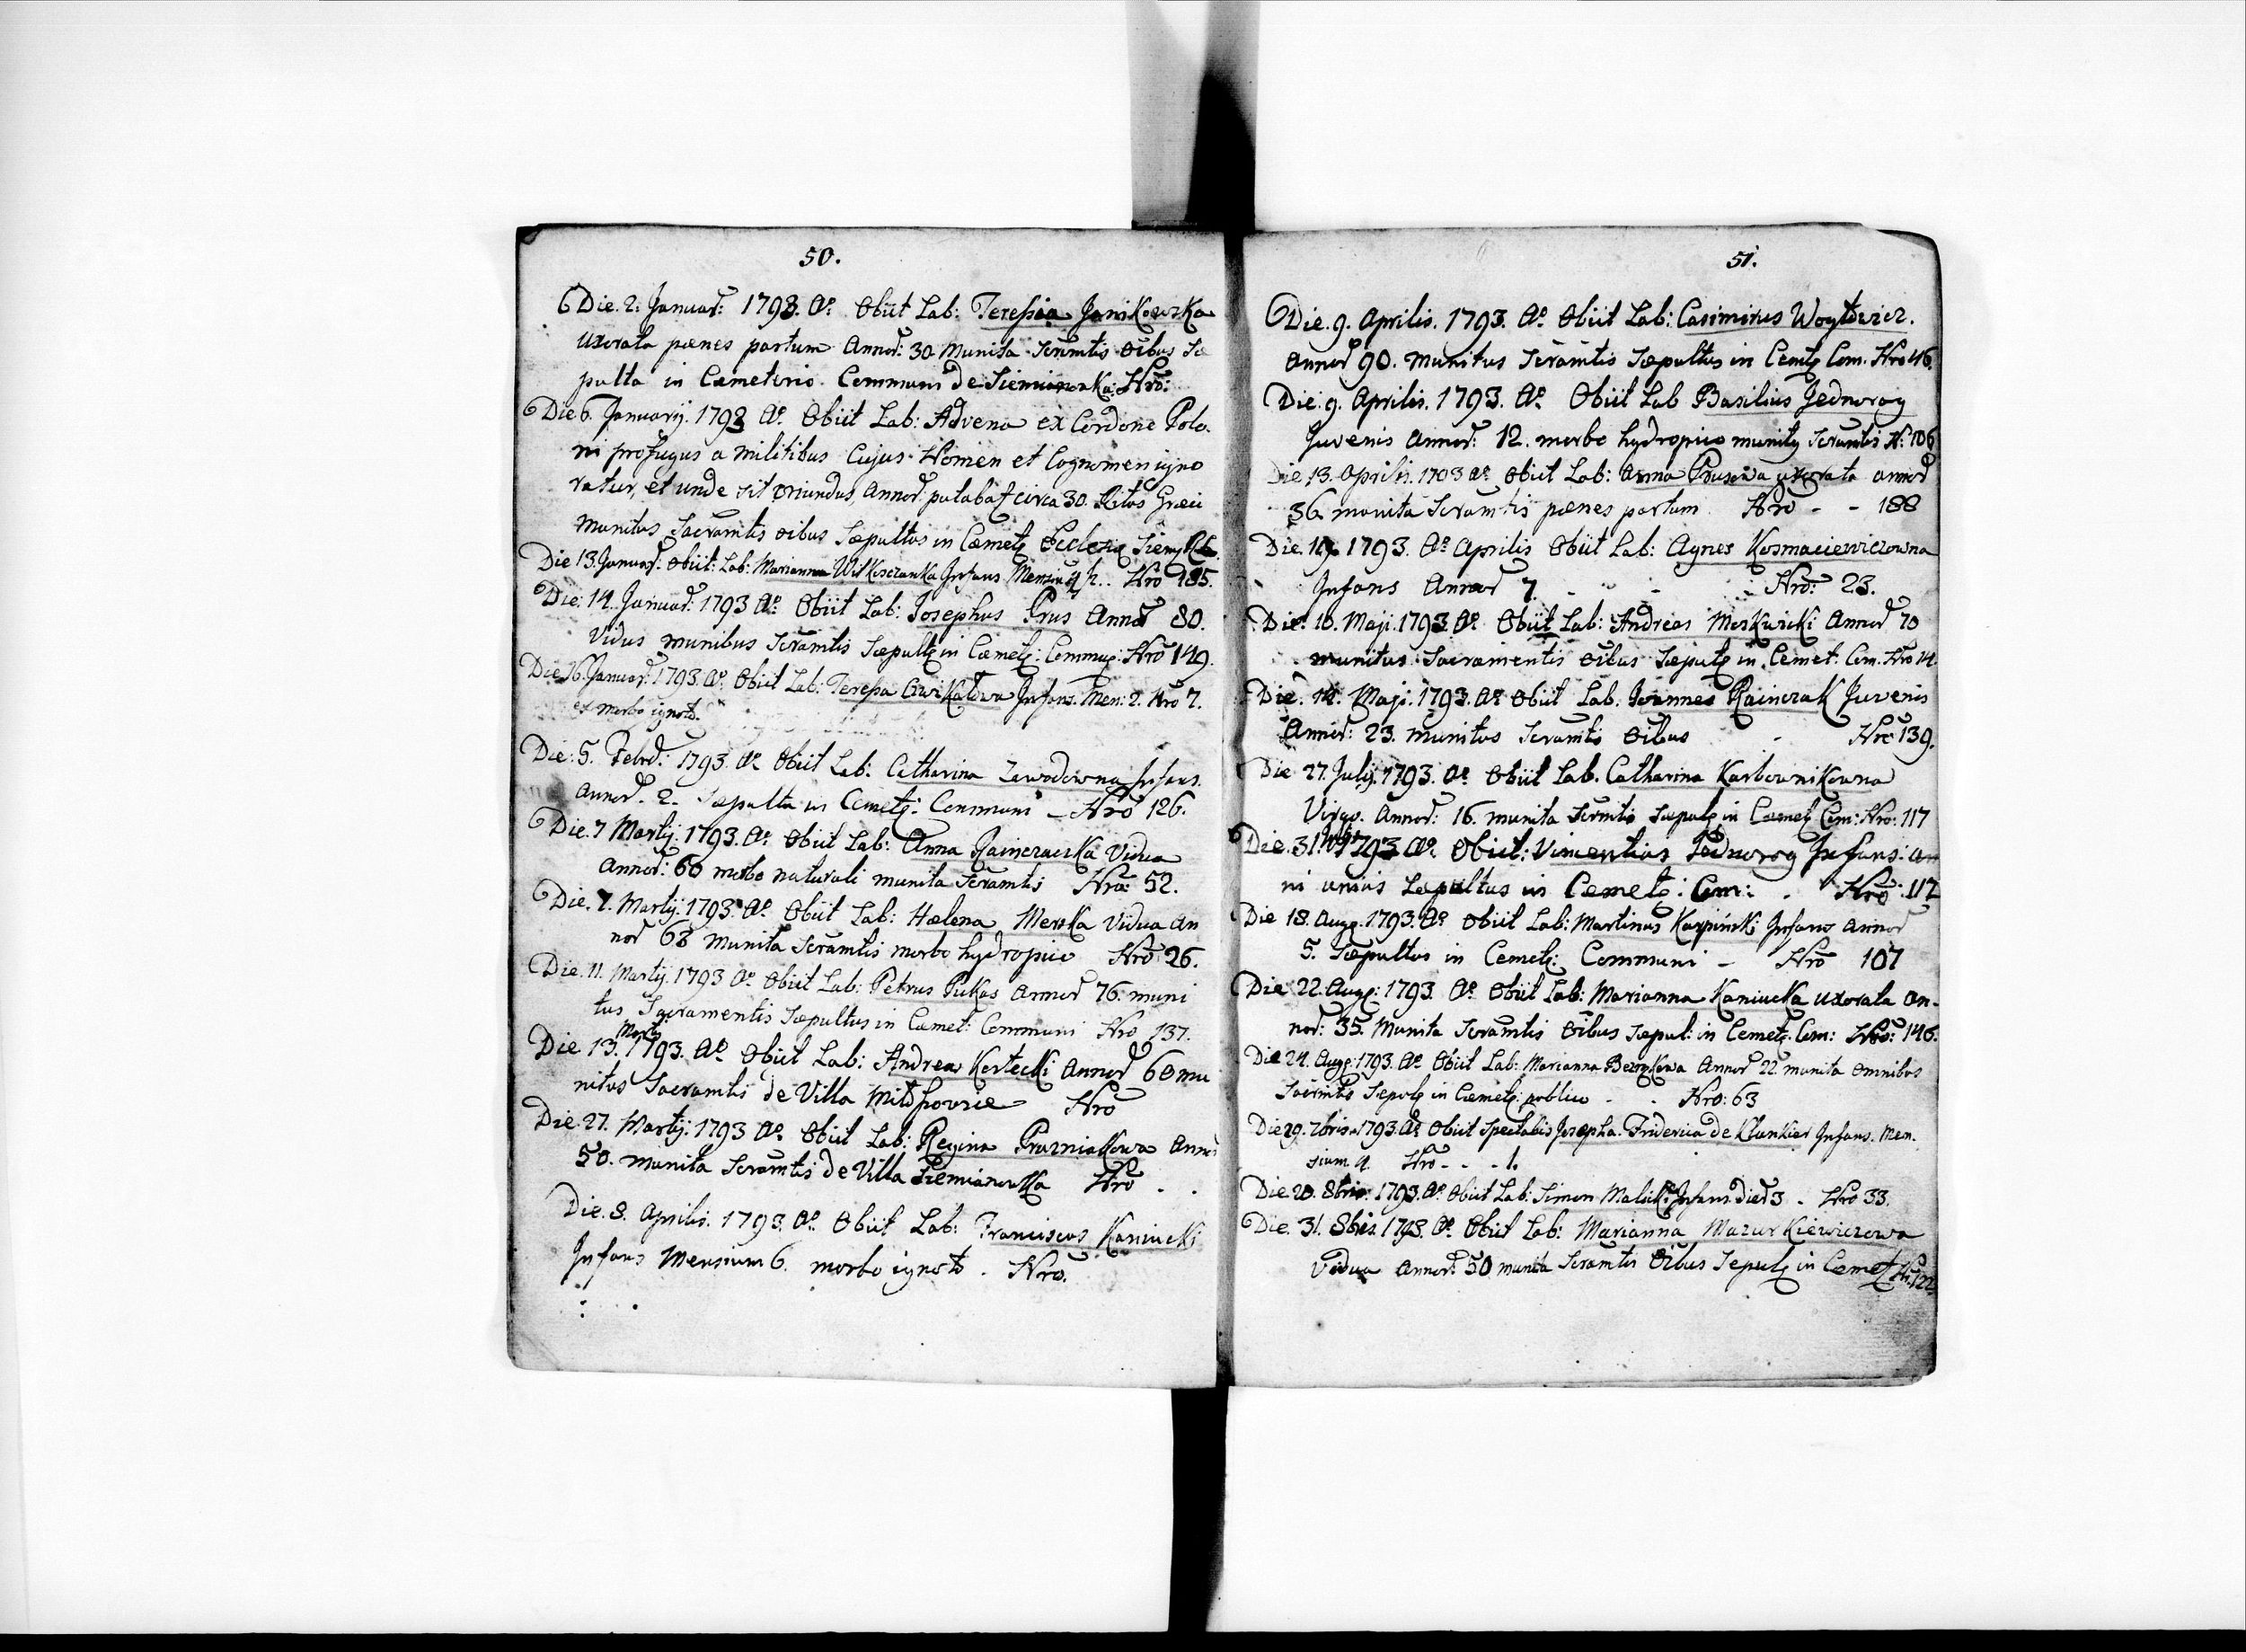 50.
Die. 2. Januar: 1793. Aº: Obiit Lab: Teressia Janikowska
Uxorata pænes partum Annor: 30. Munita Scrmtis oibus Sæ
pulta in Cæmeterio Communi de Siemianowka: Nrō:
Die 6. Januarij. 1793 Aº. Obiit Lab: Advena ex Cordone Polo.
ni profugus a militibus Cujus Nomen et Cognomen igno
ratur, et unde sit oriundus, Annor. putabat circa 30. Ritus Græci
munitus Sacramtis oibus Sæpultus in Cæmetz Ecclesiæ
Die 13. Januar. Obiit: Lab: Marianna Wilkosczanka Infans Mensium Nrō 185.
Die: 14. Januar: 1793 Aº: Obiit Lab: Josephus Prus Annor 80.
Vidus munibus Scramtis Sæpultz in Cæmetz: Commuz: Nrō 149.
Die 16. Januar. 1793. Aº. Obiit Lab: Teressa Infans. Men: 2. Nrō 7.
ex morbo ignoto.
Die: 5. Febr: 1793. Aº. Obiit Lab: Catharina Zawodowna Infans.
Annor. 2. Sæpulta in Cemetz: Communi – Nrō 126.
Die. 7 Martij. 1793. Aº. Obiit Lab: Anna Rainczacka Vidua
Annor: 60 morbo naturali munita Scramtis Nrō: 52.
Die. 7. Martij. 1793. Aº. Obiit Lab: Hælena Merska Vidua An
nor 68 munita Scramtis morbo hydropico Nrō 26.
Die. 11. Martij. 1793 Aº. Obiit Lab: Petrus Pukas Annor 76. muni
tus Sacramentis Sæpultus in Cæmet: Communi Nrō 137.
Martij
Die 13. 1793. Aº. Obiit Lab: Andreas Kertecki Annor 60 mu
nitus Sacramtis de Villa Nrō
Die. 27. Martij: 1793 Aº. Obiit Lab: Regina Prozniakowa Annor
50. munita Scramtis de Villa Siemianowka Nrō . .
Die. 8. Aprilis. 1793. Aº. Obiit Lab: Franciscus Kaniucki
Infans Mensium 6. morbo ignoto. Nrō.
51.
Die. 9. Aprilis. 1793. Aº. Obiit Lab: Casimirus Woytowicz.
Annor 90. munitus Scramtis Sæpultus in Cemtz Com. Nrō 46.
Die: 9. Aprilis. 1793. Aº. Obiit Lab Basilius Jednorog
Juvenis Annor: 12. morbo hydropico munitz Scramtis N: 106
Die 13. Aprilis. 1793 Aº. Obiit Lab: Anna Prusowa uxorata annor
36. munita Scramtis pænes partum. Nrō - - 188
Die. 19. 1793. Aº. Aprilis Obiit Lab: Agnes Kosmaciewiczowna
Infans Annor 7. - - - - Nrō: 23.
Die: 10. Maji. 1793. Aº. Obiit Lab: Andreas Morkwicki Annor 70
munitus Sacramentis oibus Sæpultz in Cemet. Com. Nrō 14.
Die. 14. Maji. 1793. Aº. Obiit Lab. Joannes Rainczak Juvenis
Annor: 23. munitus Scramtis oibus - Nrō 139.
Die 27. Julij. 1793. Aº. Obiit Lab. Catharina Karbownikowna
Virgo. Annor: 16. munita Scrmtis Sæpulz in Cæmetz Com: Nrō: 117
Die. 31. 1793 Aº. Obiit: Vincentius Jednorog Infans: an
ni unius Sepultus in Cemetz: Com: . Nrō: 112
Die 18. Augz. 1793. Aº. Obiit Lab: Martinus Karpinski Infans Annor
5. Sæpultus in Cemetz: Communi – Nrō 107
Die 22. Augz: 1793. Aº. Obiit Lab: Marianna Kaniucka uxorata an-
nor: 35. Munita Scramtis Oibus Sæpul: in Cemetz. Com: Nrō: 146.
Die 24. Augz. 1793. Aº. Obiit Lab: Marianna Annor 22. munita omnibus
Sacrmtis Sæpulz in Cæmetz: publico - . Nrō: 63
Die 29. 7bris. 1793. Aº. Obiit Spectabis Josepha. Friderica de Klunkier Infans. Men.
sium 9. Nrō - . - 1.
Die 20. 8bris. 1793. Aº. Obiit Lab: Simon Malicki Infans. Dier 3 . Nrō 33.
Die. 31. 8bris. 1793. Aº. Obiit Lab: Marianna Mazurkiewiczowa
Vidua Annor: 50 munita Scramtis Oibus Sepulz in Cemet N: 122